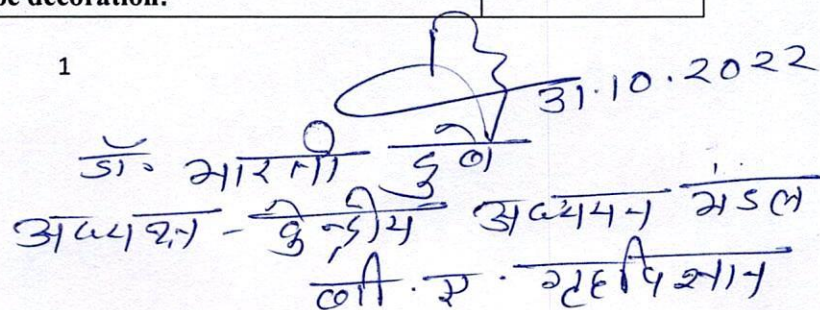 be decoration.
1
31.10.2022
डॉ. भारती दुबे
अध्यक्ष - केन्द्रीय अध्ययन मंडल
बी. ए. गृहविज्ञान